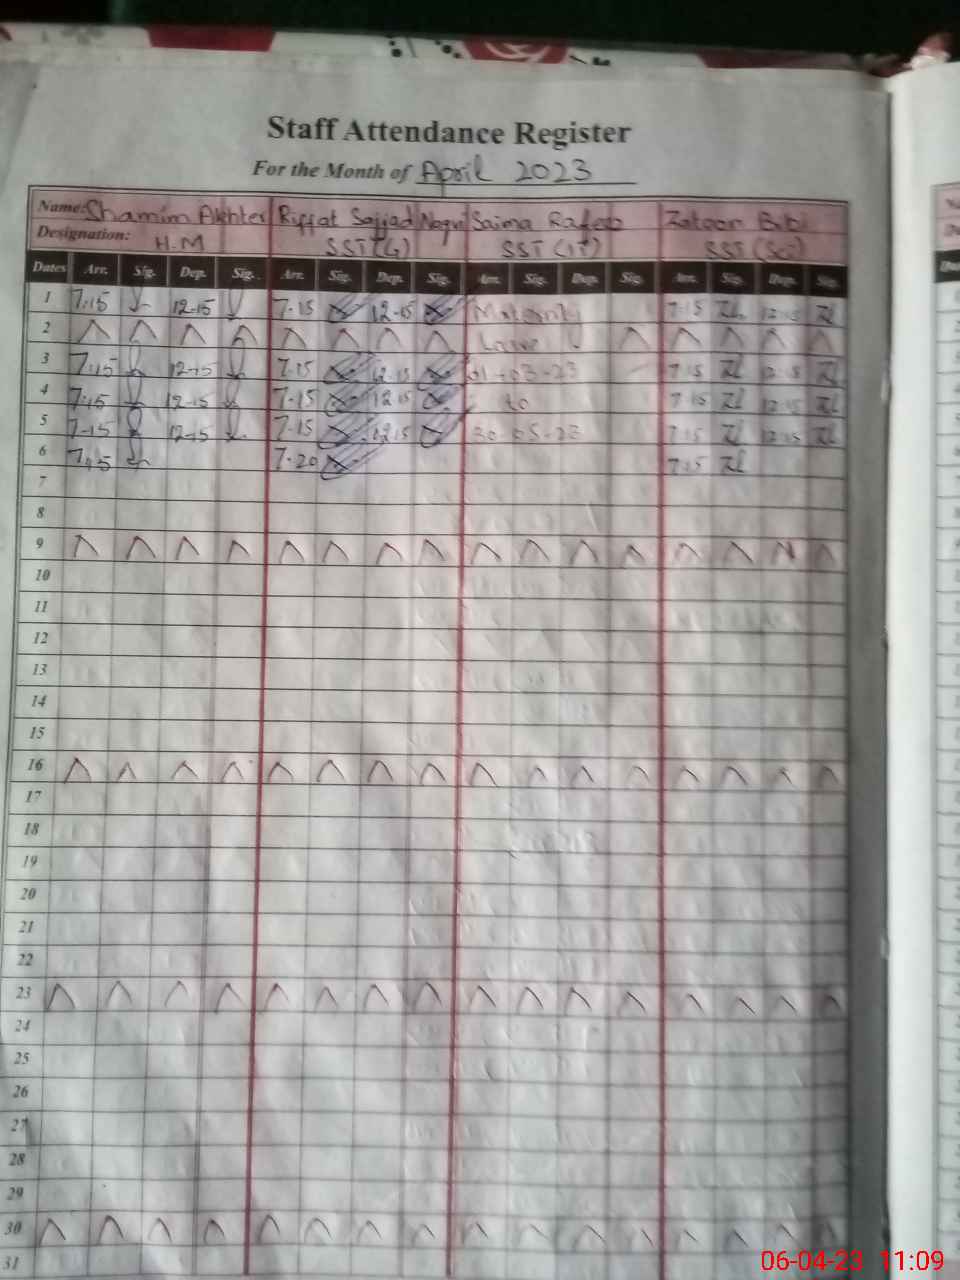 Staff Attendance Register
For the Month of April 2023
Name: Shamim Akhter Riffat Sajjad Naqvi Saima Rafeeq Zatoon Bibi
Designation: H.M SST (G) SST (IT) SST (Sc)
Dates Arr. Sig. Dep. Sig. Arr. Sig. Dep. Sig. Arr. Sig. Dep. Sig. Arr. Sig. Dep. Sig.
1 7:15 12-15 7-15 12-15 Maternity 7:15 12:15
2 Leave
3 7:15 12-15 7-15 12.15 01-03-23 7:15 12:15
4 7:15 12-15 7-15 12.15 to 7:15 12:15
5 7-15 12-15 7-15 12.15 30 05-23 7:15 12:15
6 7:15 7-20 7:15
7
8
9
10
11
12
13
14
15
16
17
18
19
20
21
22
23
24
25
26
27
28
29
30
31
06-04-23 11:09